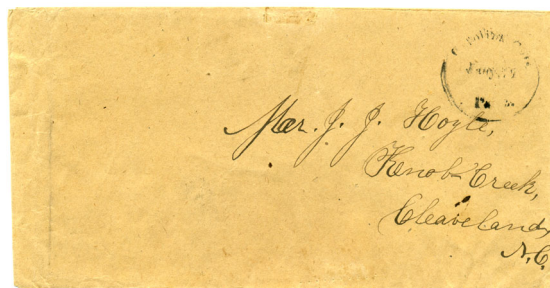 Mr. J. J. Hoyle,
Knob Creek,
Cleaveland,
N.C.